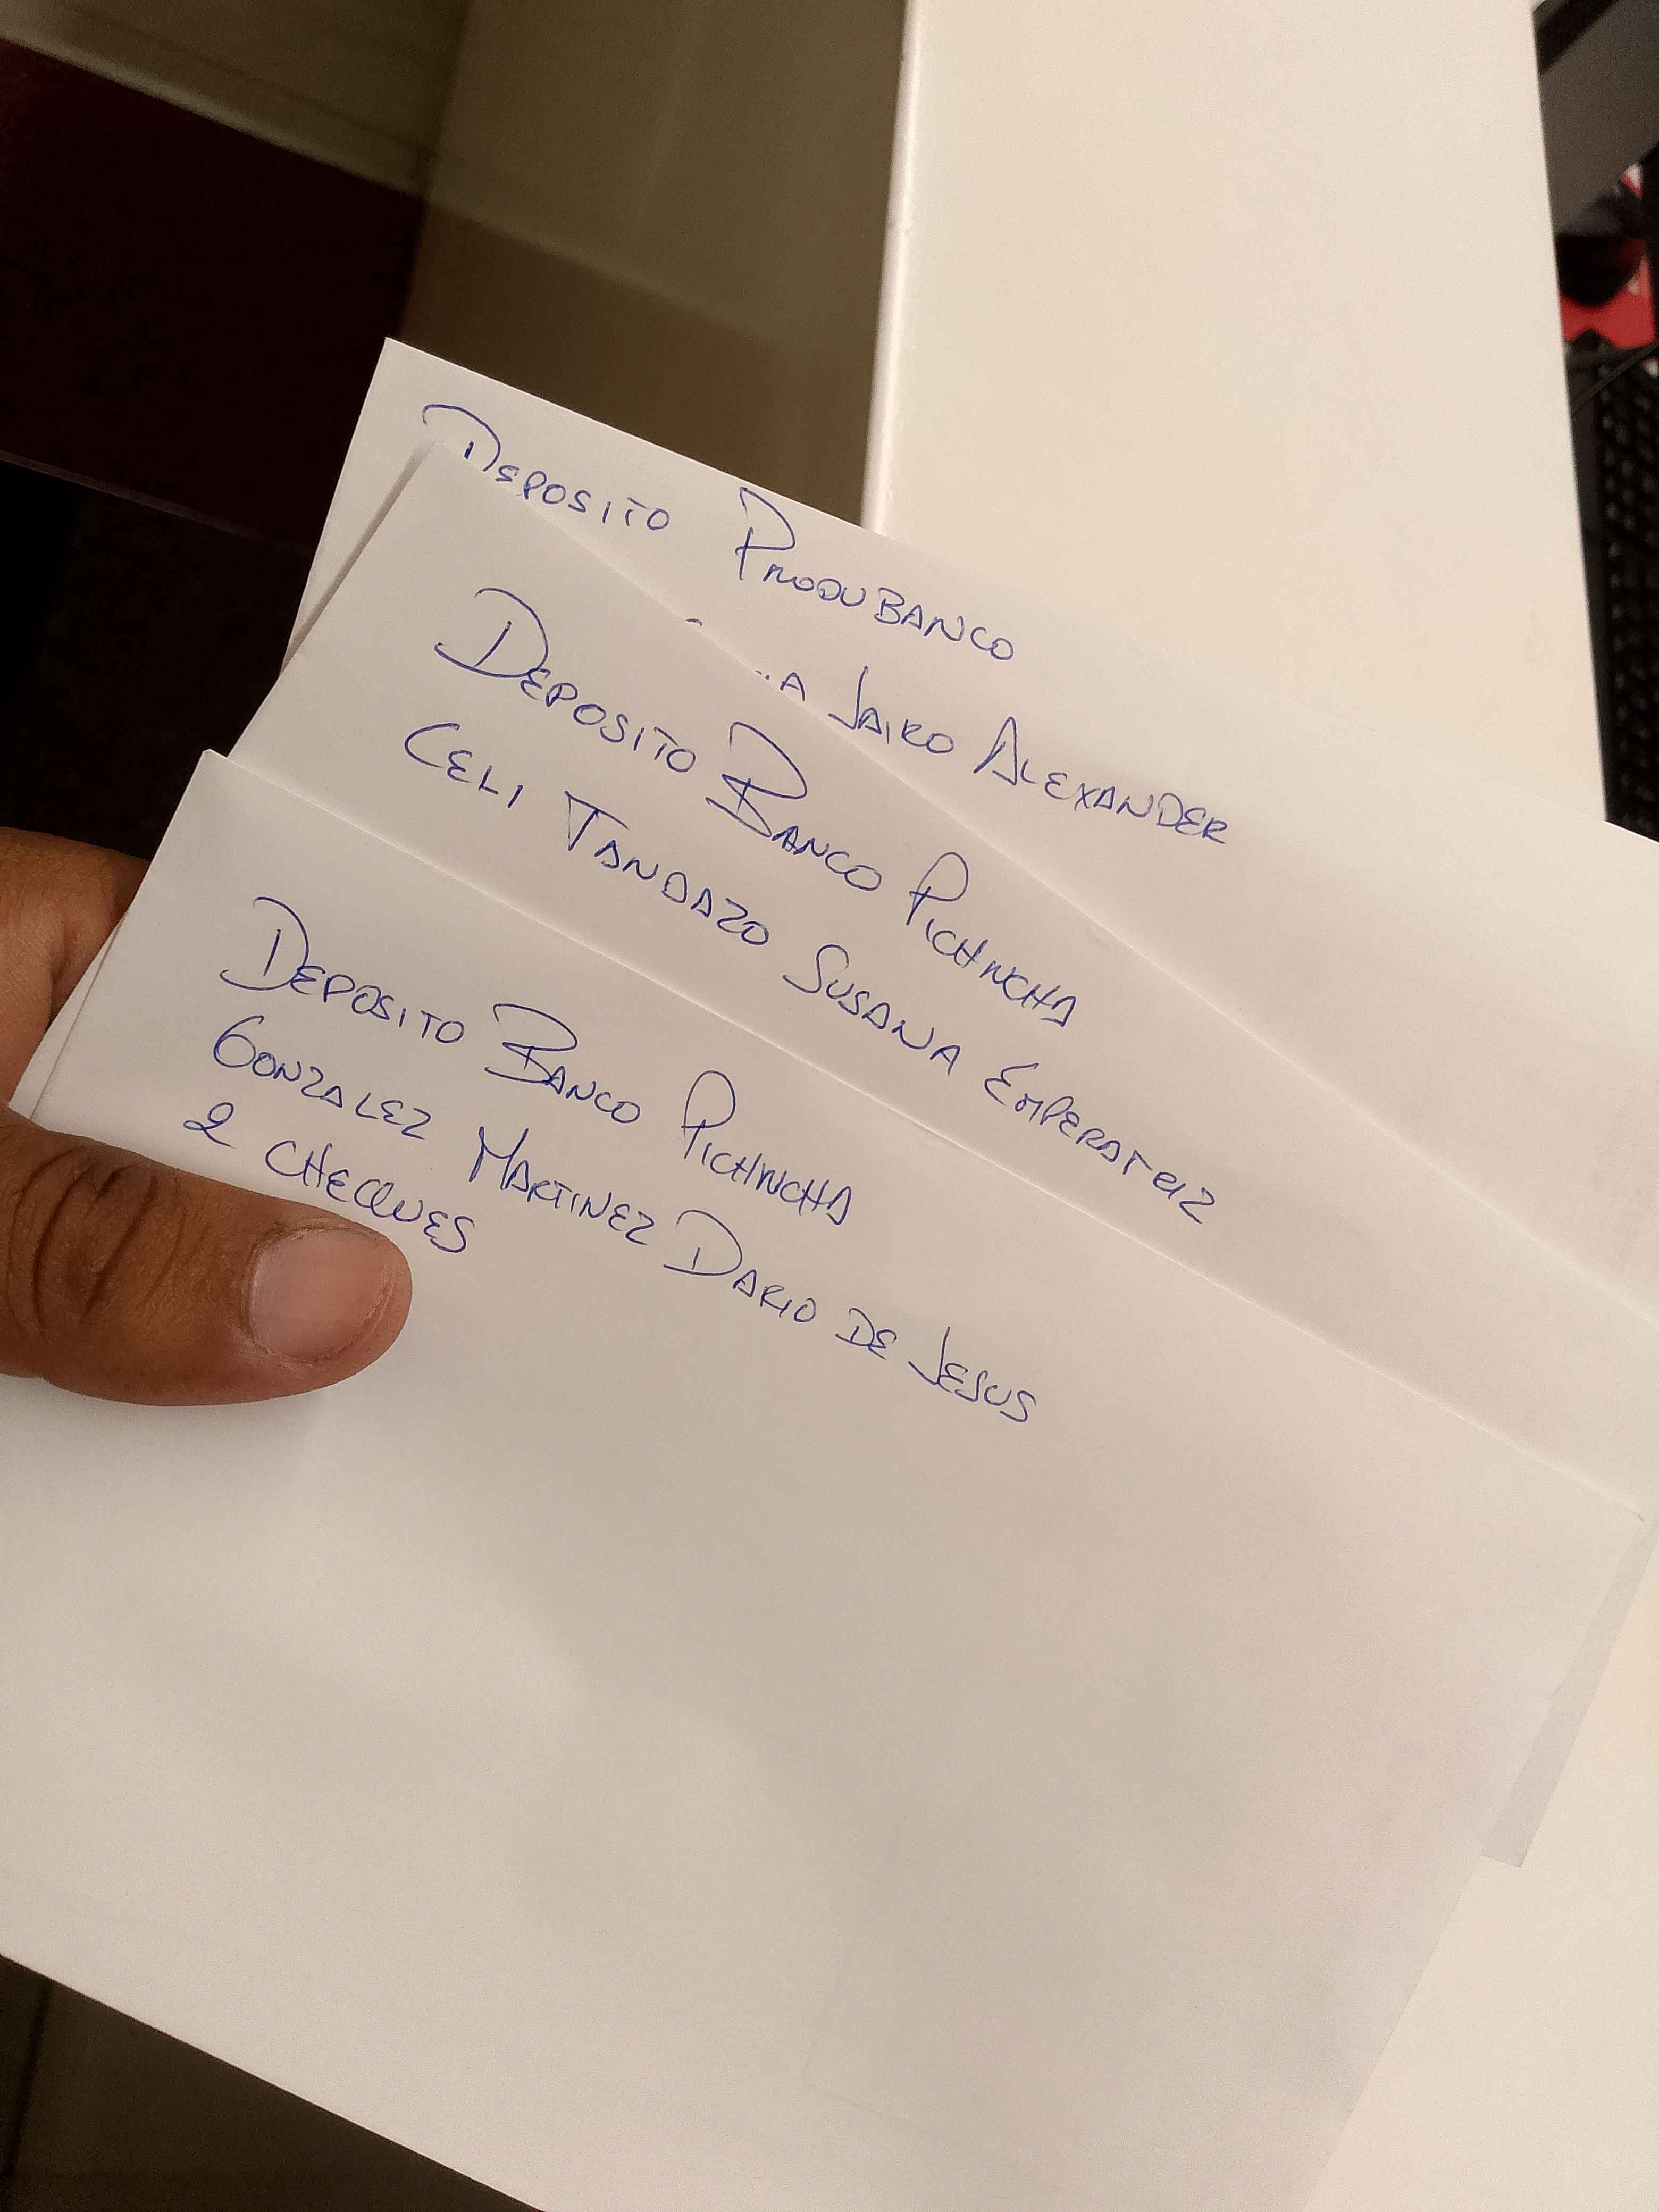 DEPOSITO PRODUBANCO
JAIRO ALEXANDER
DEPOSITO BANCO PICHINCHA
CELI TANDAZO SUSANA EMPERATRIZ
DEPOSITO BANCO PICHINCHA
GONZALEZ MARTINEZ DARIO DE JESUS
2 CHEQUES